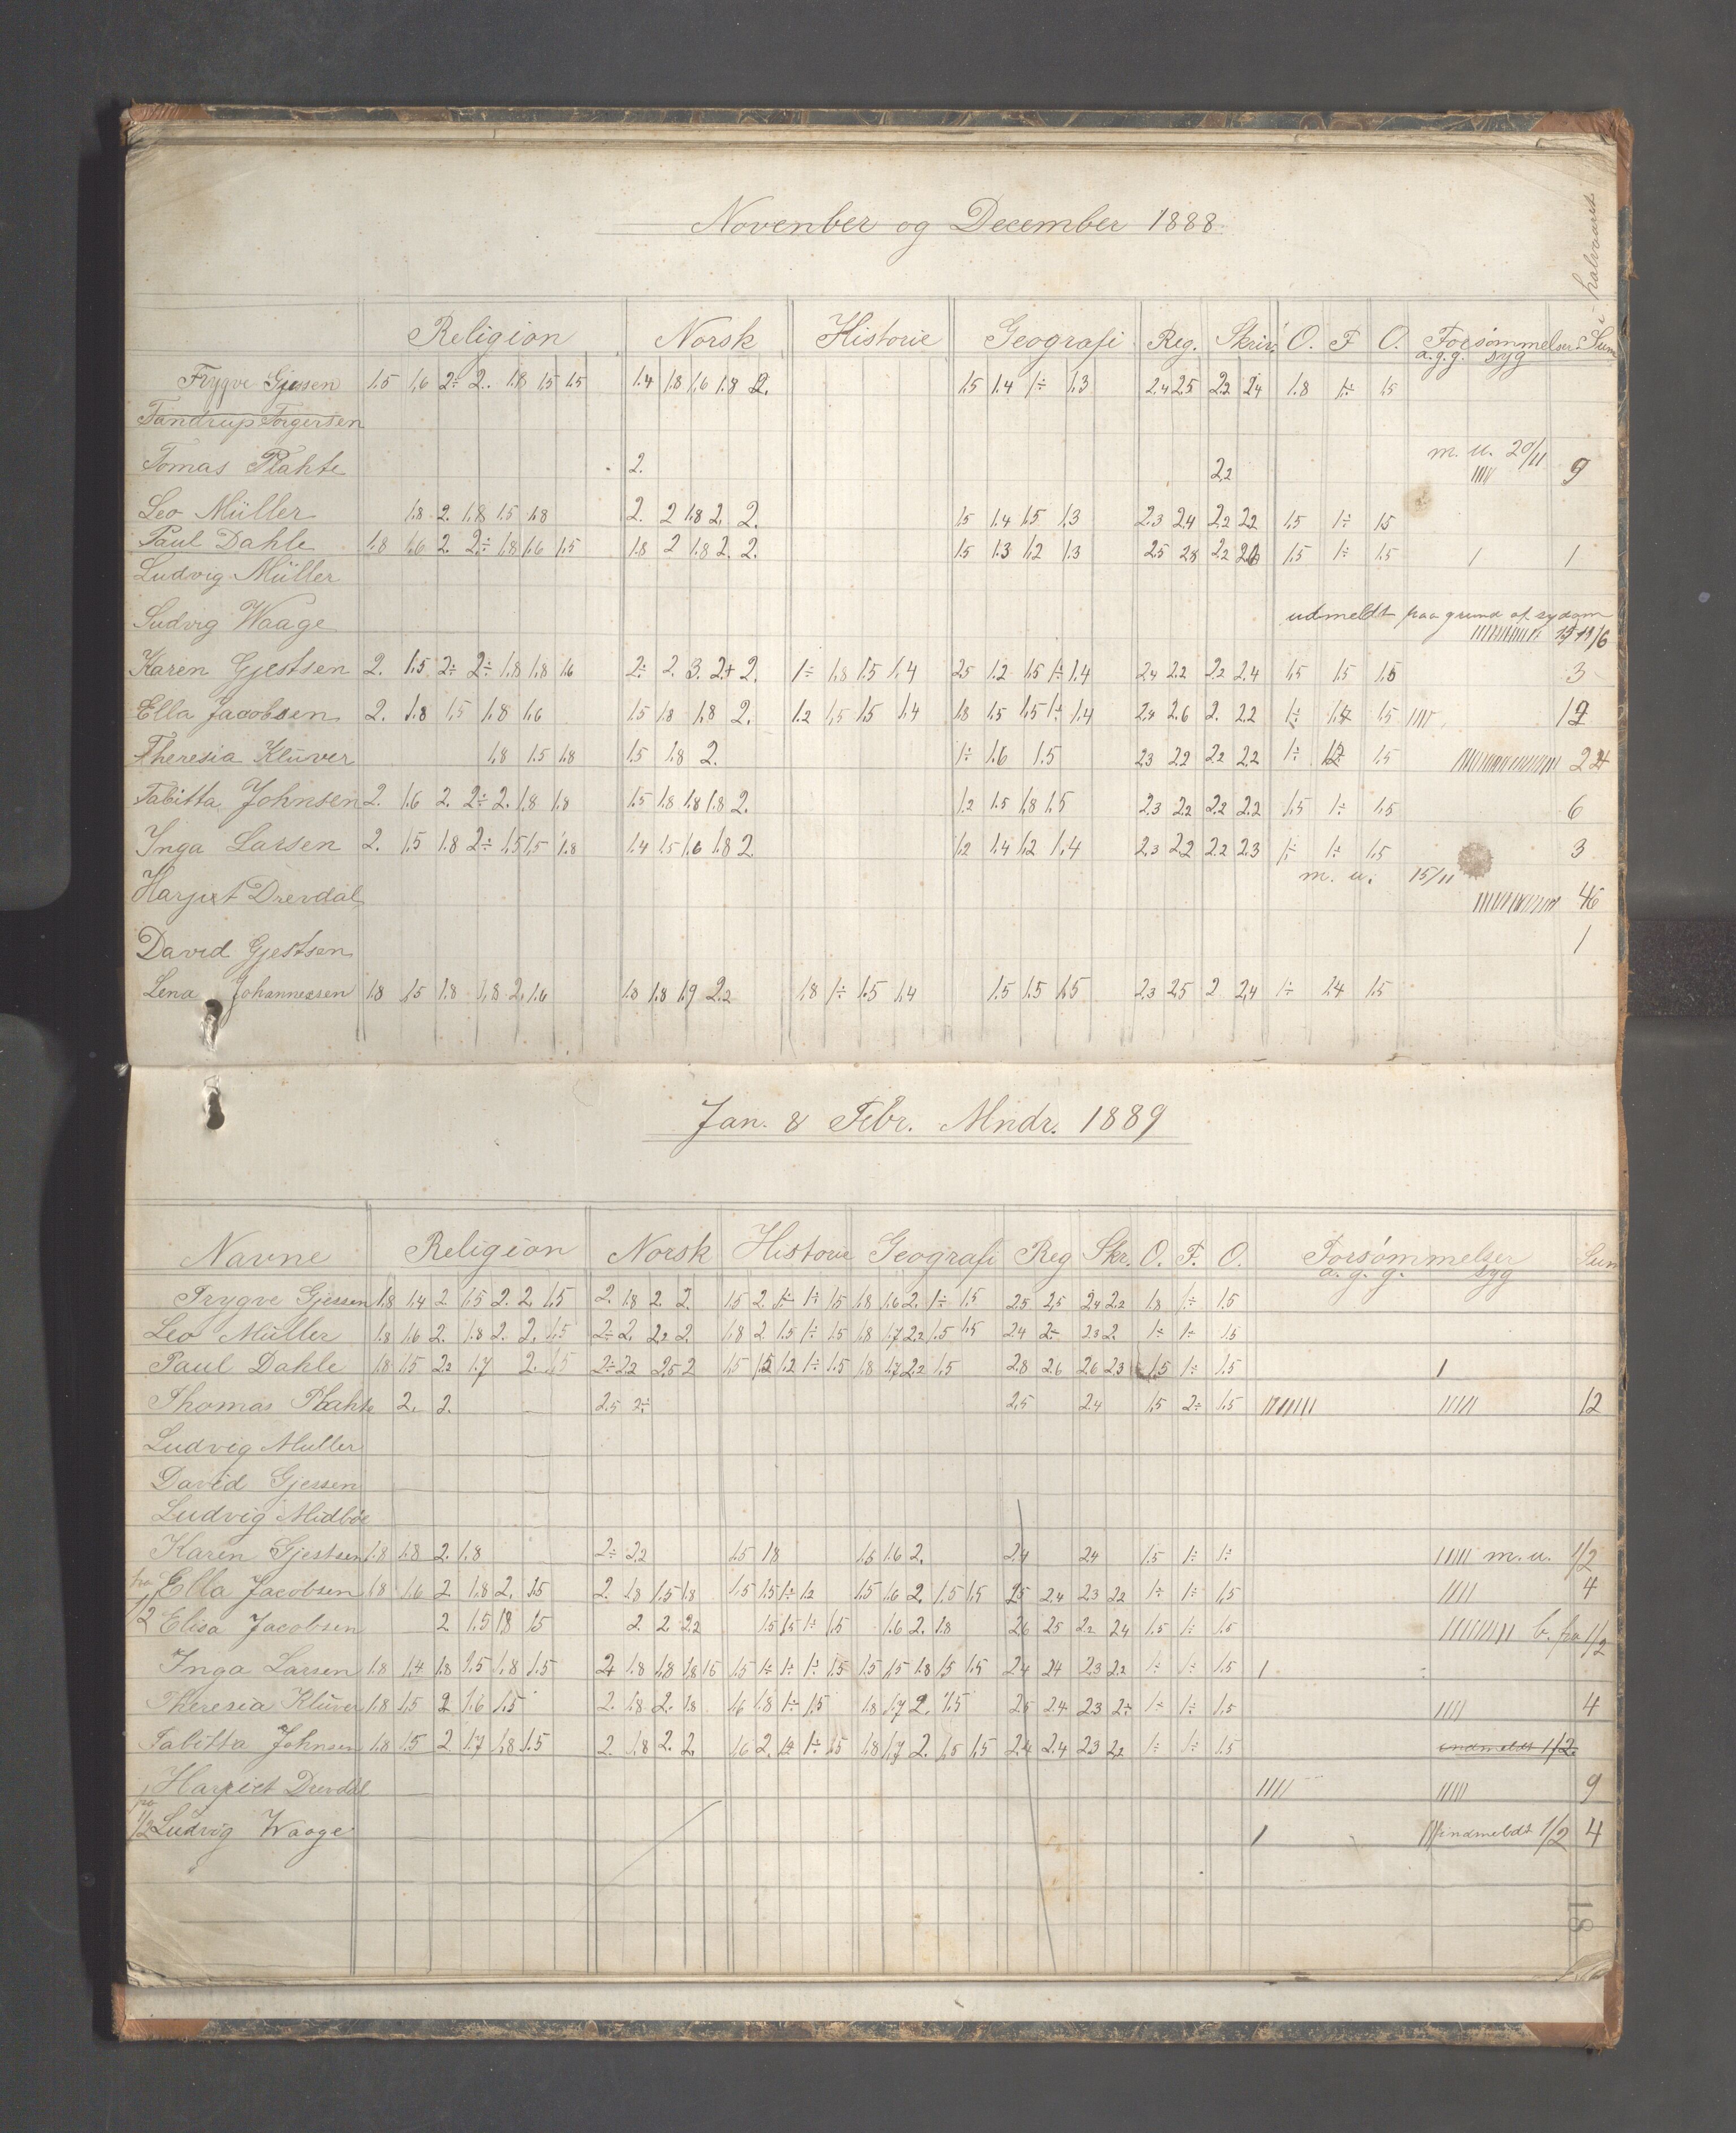 November og December 1888
i halvaaret
Religion Norsk Historie Geografi Reg. Skriv. O. F O. Forsømmelser Sum
a.g.g. syg
Trygve Gjessen 1.5 1.6 2÷ 2. 1.8 1.5 1.5 1.4 1.8 1.6 1.8 2. 1.5 1.4 1÷ 1.3 2.4 2.5 2.2 2.4 1.8 1÷ 1.5
Tandrup Torgersen
m. u. 20/11
Tomas Plahte 2. 2.2 ///// 9
Leo Müller 1.8 2. 1.8 1.5 1.8 2. 2 1.8 2. 2. 1.5 1.4 1.5 1.3 2.3 2.4 2.2 2.2 1.5 1÷ 1.5
Paul Dahle 1.8 1.6 2. 2÷ 1.8 1.6 1.5 1.8 2 1.8 2. 2. 1.5 1.3 1.2 1.3 2.5 2.8 2.2 2.6 1.5 1÷ 1.5 1 1
Ludvig Müller
Ludvig Waage udmeldt paa grund af sydom
Karen Gjestsen 2. 1.5 2÷ 2÷ 1.8 1.8 1.6 2÷ 2. 3. 2+ 2. 1÷ 1.8 1.5 1.4 2.5 1.2 1.5 1÷ 1.4 2.4 2.2 2.2 2.4 1.5 1.5 1.5 3
Ella Jacobsen 2. 1.8 1.5 1.8 1.6 1.5 1.8 1.8 2. 1.2 1.5 1.5 1.4 1.8 1.5 1.5 1÷ 1.4 2.4 2.6 2. 2.2 1÷ 1.4 1.5 ////
Theresia Klüver 1.8 1.5 1.8 1.5 1.8 2. 1÷ 1.6 1.5 2.3 2.2 2.2 2.2 1÷ 1.2 1.5
Tabitta Johnsen 2. 1.6 2. 2÷ 2. 1.8 1.8 1.5 1.8 1.8 1.8 2. 1.2 1.5 1.8 1.5 2.3 2.2 2.2 2.2 1.5 1÷ 1.5 6
Inga Larsen 2. 1.5 1.8 2÷ 1.5 1.5 1.8 1.4 1.5 1.6 1.8 2. 1.2 1.4 1.2 1.4 2.3 2.2 2.2 2.3 1÷ 1÷ 1.5 3
m. u. 15/11
Harjet Drevdal
David Gjestsen 1
Lena Johannessen 1.8 1.5 1.8 1.8 2. 1.6 1.8 1.8 1.9 2.2 1.8 1÷ 1.5 1.4 1.5 1.5 1.5 2.3 2.5 2 2.4 1÷ 1.4 1.5
Jan. & Febr. Mndr. 1889
Navne Religion Norsk Historie Geografi Reg Skr. O. F. O. Forsømmelser Sum
a. g. g. syg
Trygve Gjessen 1.8 1.4 2 1.5 2. 2. 1.5 2. 1.8 2. 2. 1.5 2. 1÷ 1÷ 1.5 1.8 1.6 2. 1÷ 1.5 2.5 2.5 2.4 2.2 1.8 1÷ 1.5
Leo Müller 1.8 1.6 2. 1.8 2. 2. 1.5 2÷ 2. 2.2 2. 1.8 2 1.5 1÷ 1.5 1.8 1.7 2.2 1.5 1.5 2.4 2÷ 2.3 2. 1÷ 1÷ 1.5
Paul Dahle 1.8 1.5 2.2 1.7 2. 1.5 2÷ 2.2 2.5 2 1.5 1.5 1.2 1÷ 1.5 1.8 1.7 2.2 1.5 2.8 2.6 2.6 2.3 1.5 1÷ 1.5 1
Thomas Plahte 2. 2. 2.5 2÷ 2.5 2.4 1.5 2÷ 1.5 /////// ///// 12
Ludvig Muller
David Gjessen
Ludvig Midbøe
Karen Gjestsen 1.8 1.8 2. 1.8 2÷ 2.2 1.5 1.8 1.5 1.6 2. 2.4 2.4 1.5 1÷ 1÷ ///// m.u. 1/2
Ella Jacobsen 1.8 1.6 2 1.8 2. 1.5 2. 1.8 1.5 1.8 1.5 1.5 1÷ 1.2 1.5 1.6 2. 1.5 1.5 2.5 2.4 2.3 2.2 1÷ 1÷ 1.5 //// 4
fra 1/2 Elisa Jacobsen 2. 1.5 1.8 1.5 2. 2. 2.2 1.5 1.5 1÷ 1.5 1.6 2. 1.8 2.6 2.5 2.2 2.4 1.5 1÷ 1.5 ///////// b. fra 1/2
Inga Larsen 1.8 1.4 1.8 1.5 1.8 1.5 2+ 1.8 1.8 1.8 1.5 1.5 1÷ 1÷ 1÷ 1.5 1.5 1.5 1.8 1.5 1.5 2.4 2.4 2.3 2.2 1÷ 1÷ 1.5 1
Theresia Klüver 1.8 1.5 2 1.6 1.5 2. 1.8 2. 1.8 1.6 1.8 1÷ 1.5 1.8 1.7 2. 1.5 2.5 2.4 2.3 2÷ 1÷ 1÷ 1.5 //// 4
Tabitta Johnsen 1.8 1.5 2 1.7 1.8 1.5 2. 1.8 2. 2. 1.6 2. 1.4 1÷ 1.5 1.8 1.7 2. 1.5 1.5 2.4 2.4 2.3 2.2 1÷ 1÷ 1.5 indmeldt 1/2
Harriet Drevdal //// ///// 9
fra 1/2 Ludvig Waage 1 indmeldt 1/2 4
18